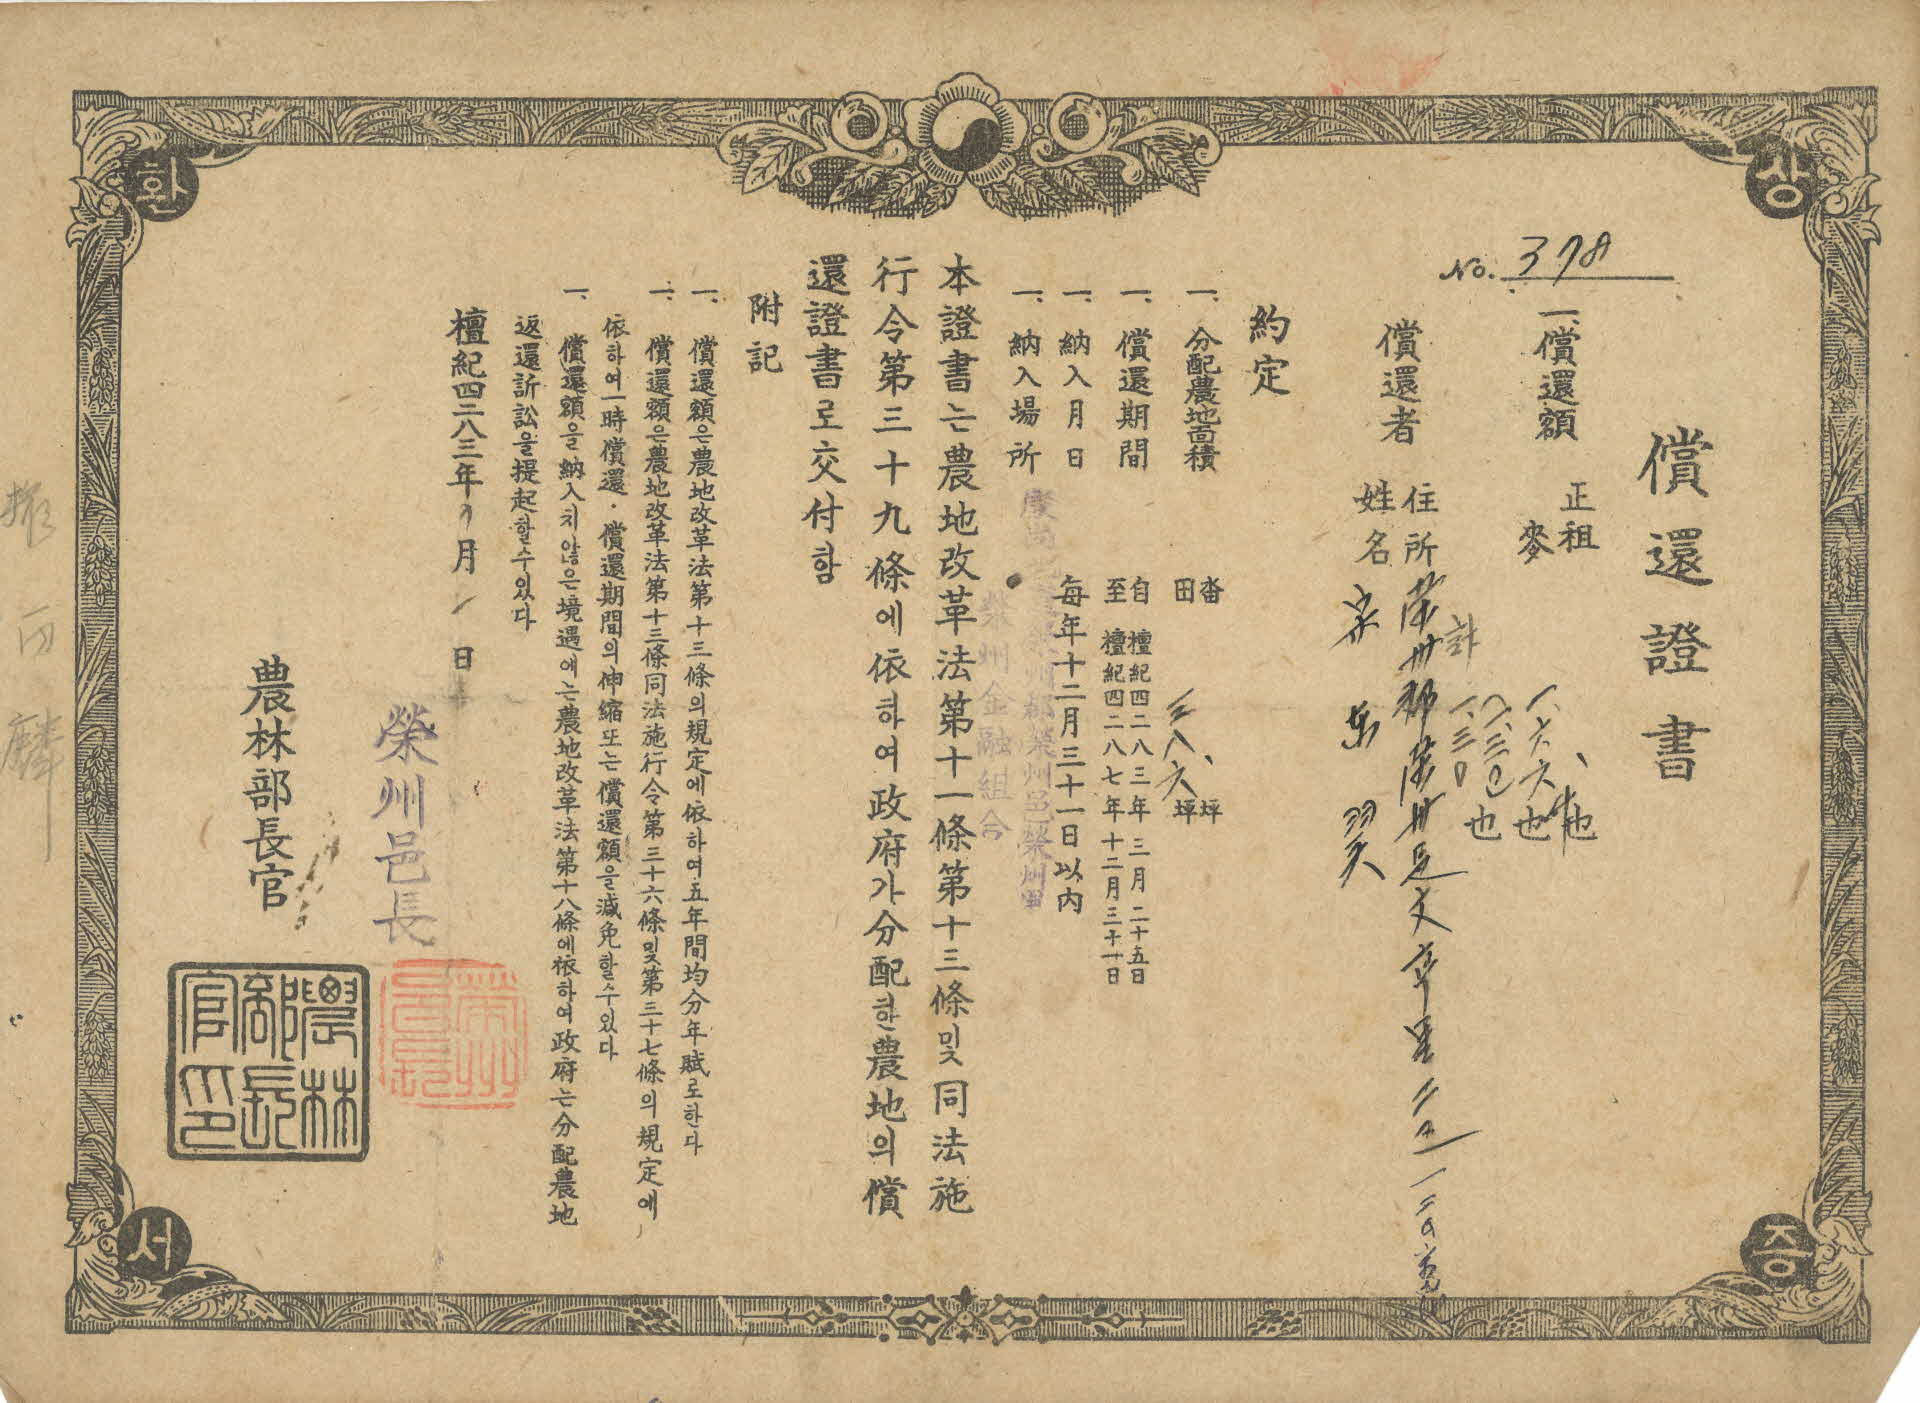 상 환 증 서
No. 378
償還證書
一、償還額 正租
麥 一、六六也
計
也
償還者 住所
姓名
約定
一、分配農地面積 畓 坪
田 三八六坪
一、償還期間 自 檀紀四二八三年 三月二十五日
至 檀紀四二八七年十二月三十一日
一、納入月日 每年十二月三十一日以內
一、納入場所 榮州郡榮州邑榮州里
榮州金融組合
本證書는農地改革法第十一條第十三條및同法施
行令第三十九條에依하여政府가分配한農地의償
還證書로交付함
附記
一、償還額은農地改革法第十三條의規定에依하여五年間均分年賦로한다
一、償還額은農地改革法第十三條同法施行令第三十六條및第三十七條의規定에
依하여一時償還·償還期間의伸縮또는償還額을減免할수있다
一、償還額을納入치않은境遇에는農地改革法第十八條에依하여政府는分配農地
返還訴訟을提起할수있다
檀紀四二八三年 月 日
榮州邑長
榮州邑長
農林部長官
農林部長官印